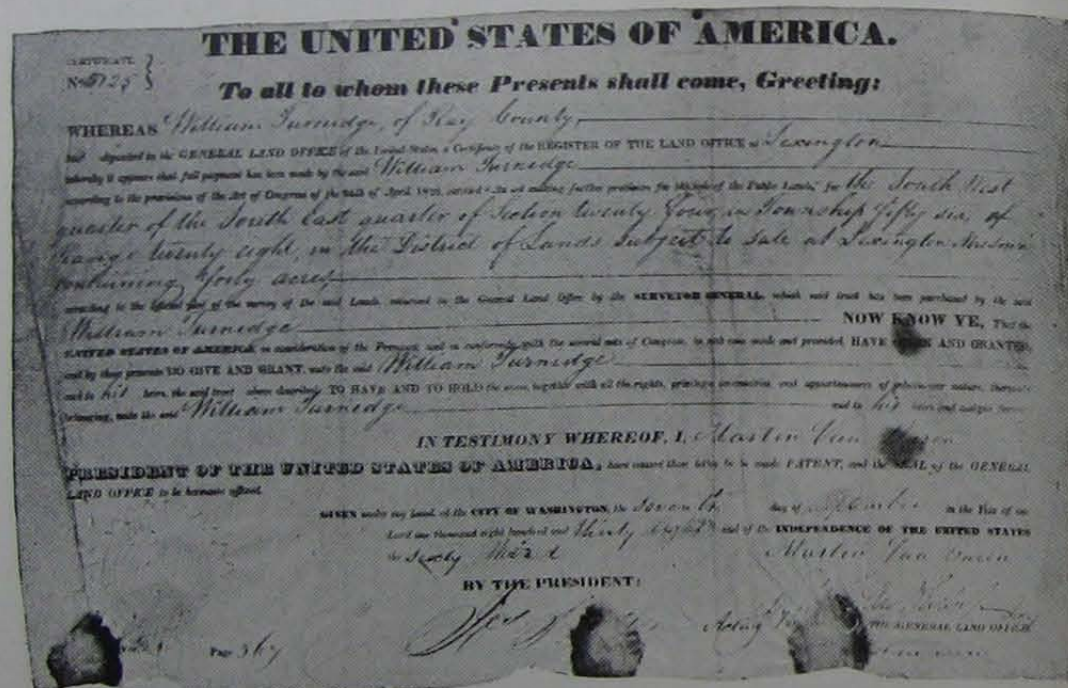 THE UNITED STATES OF AMERICA.
CERTIFICATE
No 5125
To all to whom these Presents shall come, Greeting:
WHEREAS William Turnedge, of Ray County,
deposited in the GENERAL LAND OFFICE of the United States, a Certificate of the REGISTER OF THE LAND OFFICE at Lexington
whereby it appears that full payment has been made by the said William Turnedge
according to the provisions of the Act of Congress of the 24th of April 1820, entitled "An act making further provision for the sale of the Public Lands," for the South West
quarter of the South East quarter of Section twenty four, in Township fifty six, of
Range twenty eight, in the District of Lands subject to sale at Lexington Missouri
containing forty acres
according to the official plat of the survey of the said Lands, returned to the General Land Office by the SURVEYOR GENERAL, which said tract has been purchased by the said
William Turnedge NOW KNOW YE, That the
UNITED STATES OF AMERICA, in consideration of the Premises, and in conformity with the several acts of Congress, in such case made and provided, HAVE GIVEN AND GRANTED,
and by these presents DO GIVE AND GRANT, unto the said William Turnedge
and to his heirs, the said tract above described; TO HAVE AND TO HOLD the same, together with all the rights, privileges, immunities, and appurtenances of whatsoever nature, thereunto
belonging, unto the said William Turnedge and to his heirs and assigns forever
IN TESTIMONY WHEREOF, I, Martin Van Buren
PRESIDENT OF THE UNITED STATES OF AMERICA, have caused these letters to be made PATENT, and the SEAL of the GENERAL
LAND OFFICE to be hereunto affixed.
GIVEN under my hand, at the CITY OF WASHINGTON, the Seventh day of in the Year of our
Lord one thousand eight hundred and thirty eight and of the INDEPENDENCE OF THE UNITED STATES
the Sixty third Martin Van Buren
BY THE PRESIDENT:
Acting
THE GENERAL LAND OFFICE
Page 367